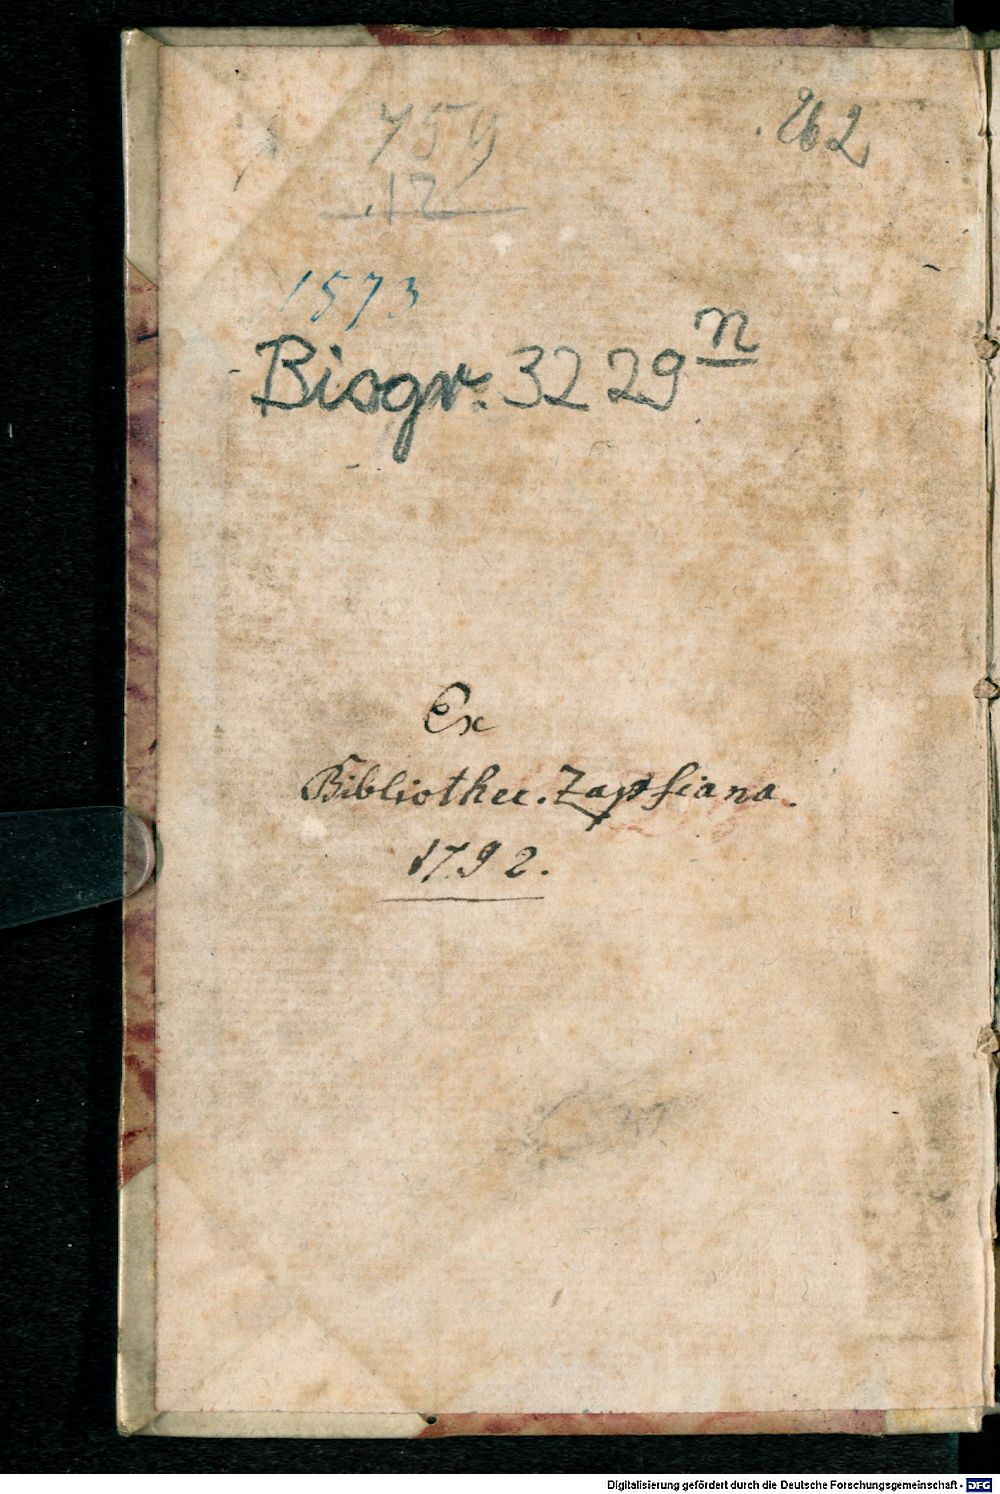 262
759
12
1573
Biogr. 3229ⁿ
Ex
Bibliothec. Zapfiana.
1792.
Digitalisierung gefördert durch die Deutsche Forschungsgemeinschaft - DFG